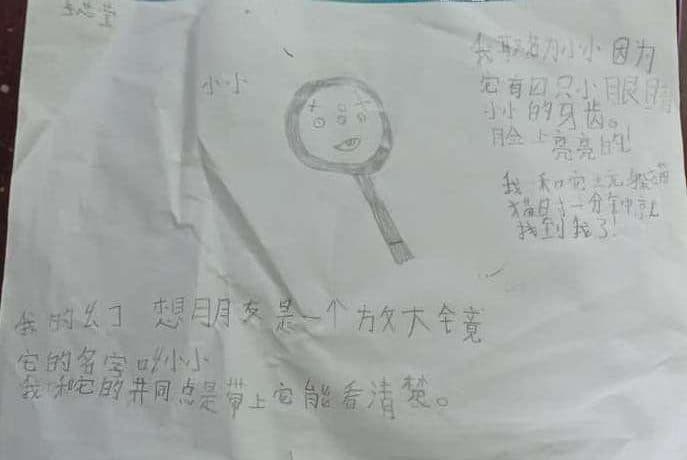 小小
我取名为小小因为
它有四只小眼睛
小小的牙齿。
脸上亮亮的!
我和它玩躲猫
猫时一分钟就
找到我了!
我的幻想朋友是一个放大镜
它的名字叫小小
我和它的共同点是带上它能看清楚。